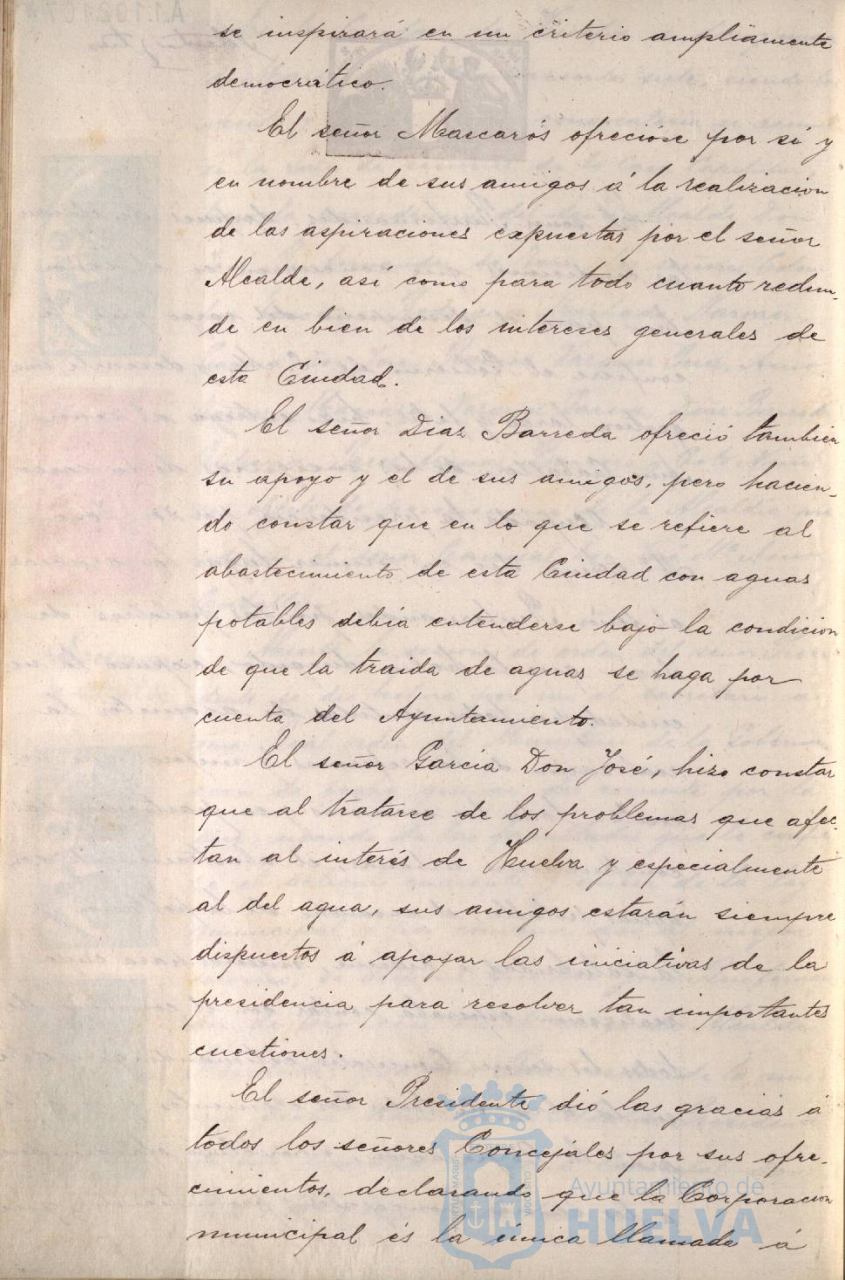 se inspirará en un criterio ampliamente
democrático.
El señor Mascarós ofrecióse por sí y
en nombre de sus amigos á la realizacion
de las aspiraciones expuestas por el señor
Alcalde, así como para todo cuanto redun-
de en bien de los intereses generales de
esta Ciudad.
El señor Diaz Barreda ofreció tambien
su apoyo y el de sus amigos, pero hacien-
do constar que en lo que se refiere al
abastecimiento de esta Ciudad con aguas
potables debía entenderse bajo la condicion
de que la traida de aguas se haga por
cuenta del Ayuntamiento.
El señor García Don José, hizo constar
que al tratarse de los problemas que afec-
tan al interés de Huelva y especialmente
al del agua, sus amigos estarán siempre
dispuestos á apoyar las iniciativas de la
presidencia para resolver tan importantes
cuestiones.
El señor Presidente dió las gracias á
todos los señores Concejales por sus ofre-
cimientos, declarando que la Corporacion
municipal és la única llamada á
Ayuntamiento de
HUELVA